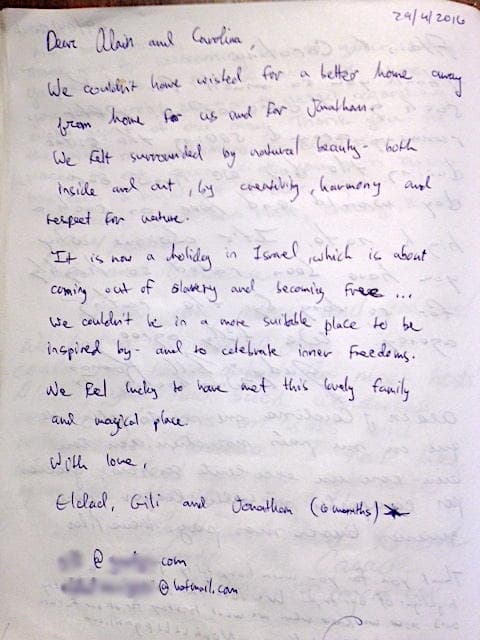 29/4/2016
Dear Alain and Carolina,
We couldn't have wished for a better home away
from home for us and for Jonathan.
We felt surrounded by natural beauty - both
inside and out, by creativity, harmony and
respect for nature.
It is now a holiday in Israel, which is about
coming out of slavery and becoming free...
We couldn't be in a more suitable place to be
inspired by - and to celebrate inner freedoms.
We feel lucky to have met this lovely family
and magical place.
With love,
Eldad, Gili and Jonathan (6 months)
@ com
@hotmail.com